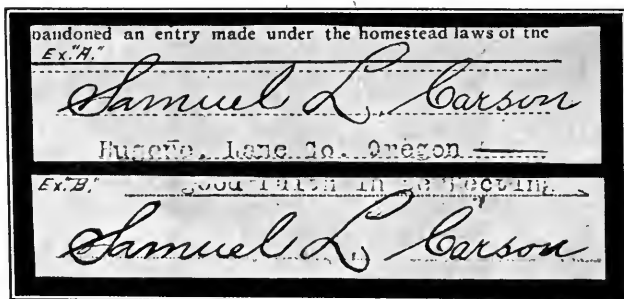 bandoned an entry made under the homestead laws of the
Ex. "A."
Samuel L. Carson
Eugene, Lane Co. Oregon
Ex. "B."
good faith in perfecting
Samuel L. Carson